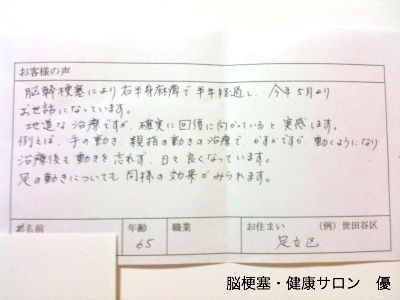 お客様の声
脳幹梗塞により右半身麻痺で半年経過し、今年5月より
お世話になっています。
地道な治療ですが、確実に回復に向かっていると実感します。
例えば、手の動き、親指の動きの治療で、かすかですが、動くようになり
治療後も動きを忘れず、日々良くなっています。
足の動きについても同様の効果がみられます。
お名前 年齢 職業 お住まい (例)世田谷区
65 足立区
脳梗塞・健康サロン 優